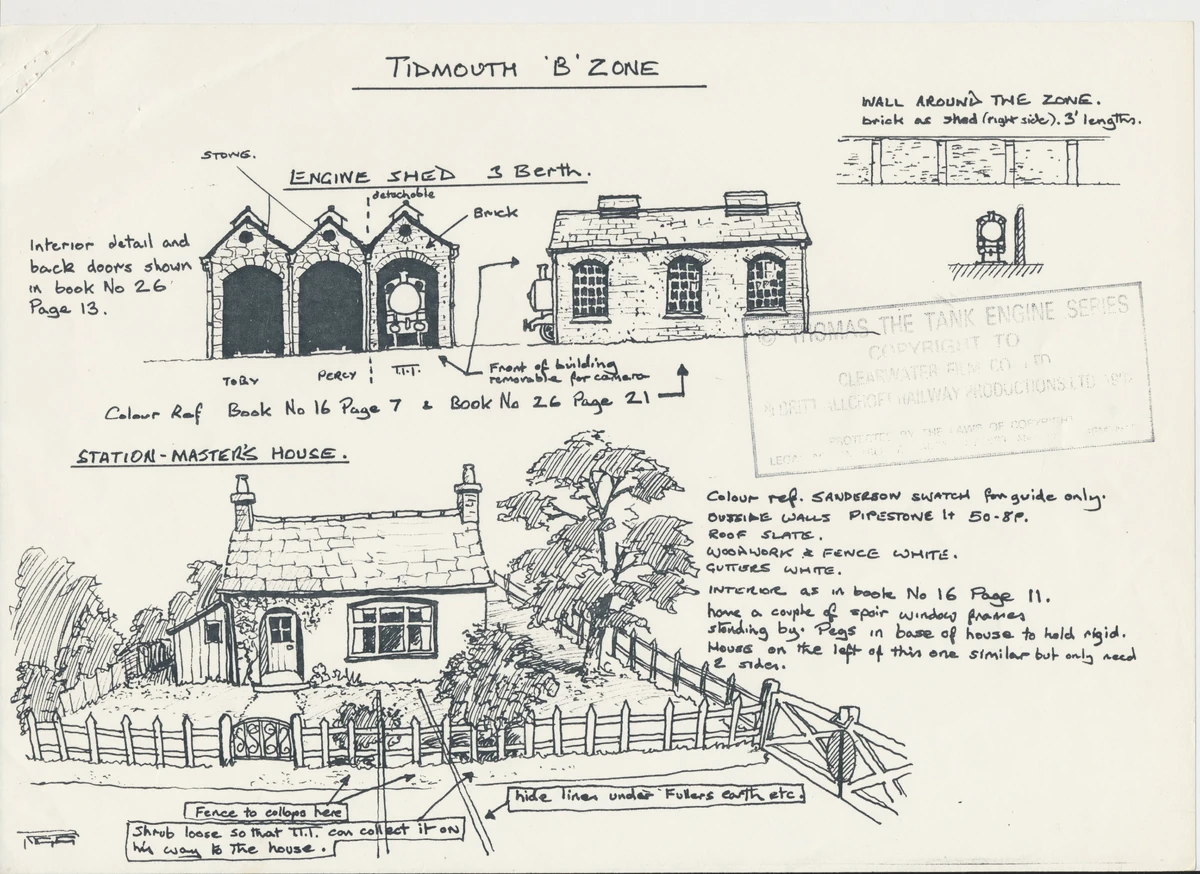 TIDMOUTH 'B' ZONE
WALL AROUND THE ZONE.
brick as shed (right side). 3' lengths.
STONE.
ENGINE SHED 3 Berth.
detachable
Brick
Interior detail and
back doors shown
in book No 26
Page 13.
TOBY
PERCY
T.T.T.
Front of building
removable for camera
Colour Ref Book No 16 Page 7 & Book No 26 Page 21
© THOMAS THE TANK ENGINE SERIES
COPYRIGHT TO
CLEARWATER FILM CO LTD
& BRITT ALLCROFT RAILWAY PRODUCTIONS LTD
PROTECTED BY THE LAWS OF COPYRIGHT
LEGAL
STATION-MASTER'S HOUSE.
Colour ref. SANDERSON SWATCH for guide only.
OUTSIDE WALLS PIPESTONE Lt 50-8P.
ROOF SLATE.
WOODWORK & FENCE WHITE.
GUTTERS WHITE.
INTERIOR as in book No 16 Page 11.
have a couple of spair window frames
standing by. Pegs in base of house to hold rigid.
House on the left of this one similar but only need
2 sides.
Fence to collaps here
hide lines under Fullers earth etc.
Shrub loose so that T.T.T. can collect it on
his way to the house.